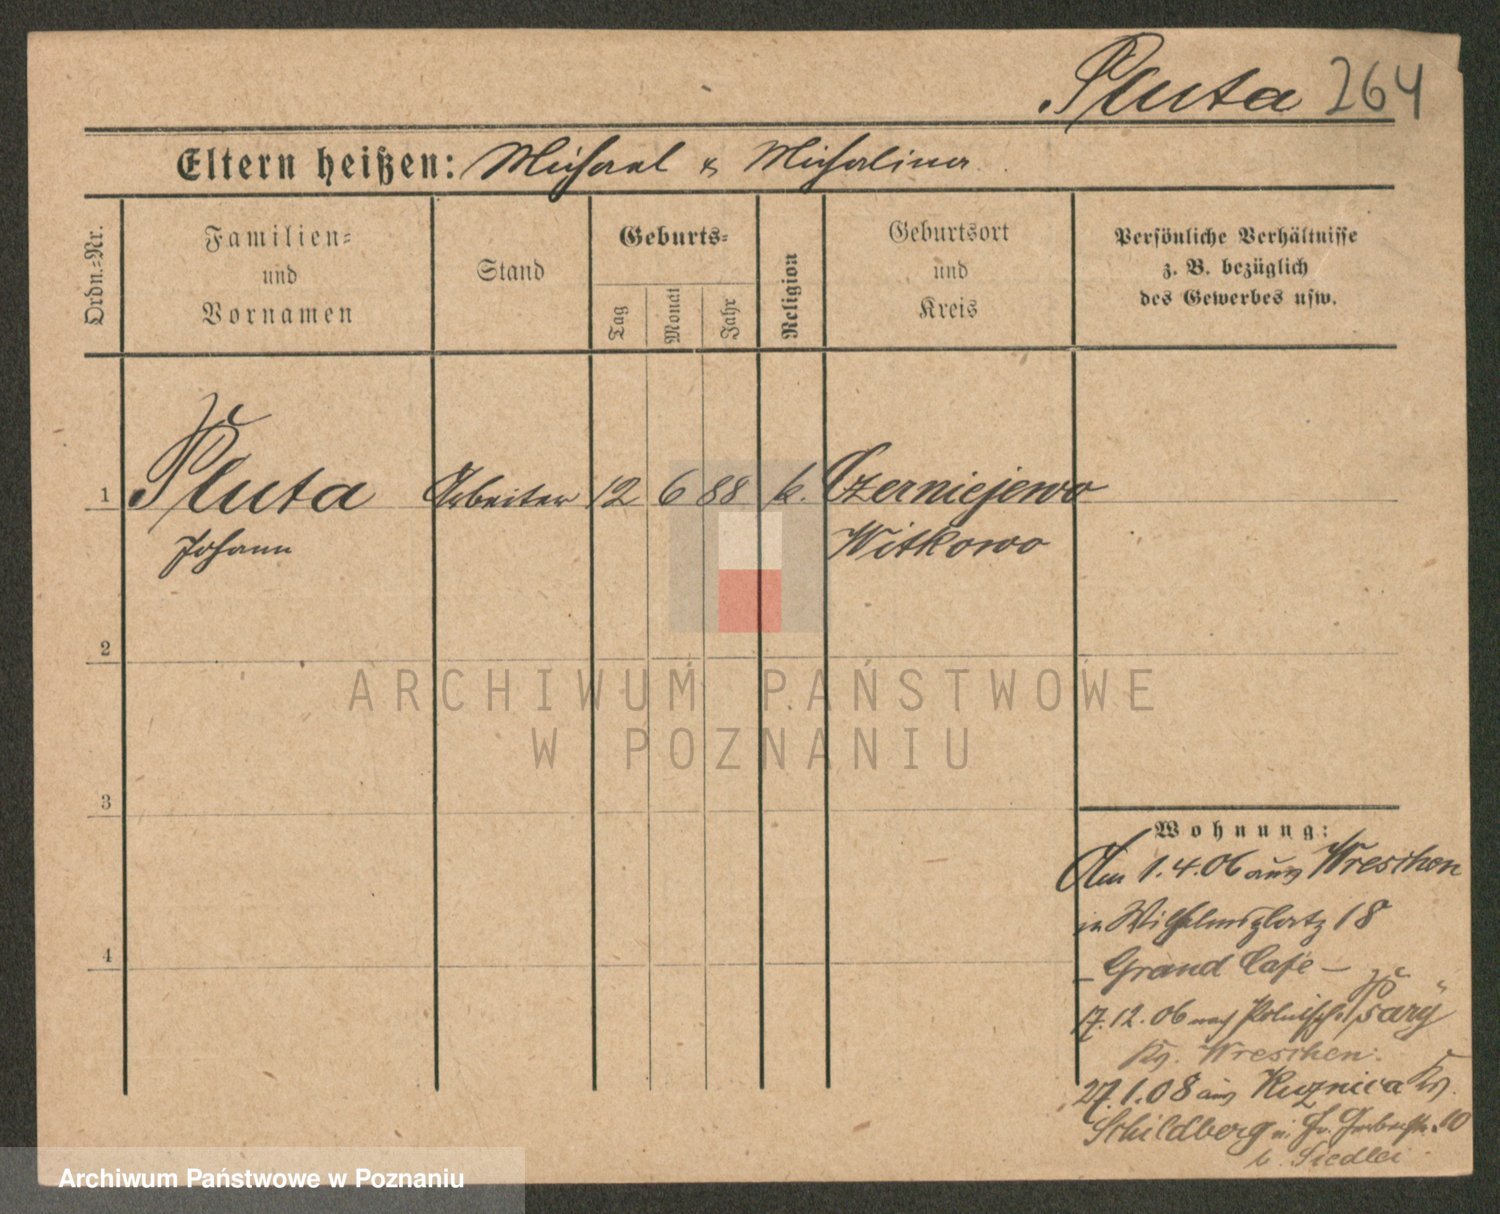 Pluta 264
Eltern heißen: Michael & Michalina
Ordn.-Nr.
Familien-
und
Vornamen
Stand
Geburts-
Tag
Monat
Jahr
Religion
Geburtsort
und
Kreis
Persönliche Verhältnisse
z. B. bezüglich
des Gewerbes usw.
1 Pluta Arbeiter 12 6 88 k. Czerniejewo
Johann Witkowo
2
ARCHIWUM PAŃSTWOWE
W POZNANIU
3
Wohnung:
Am 1.4.06 aus Wreschen
in Wilhelmsplatz 18
– Grand Café –
4
17.12.06 nach Polnisch Psary
Kr. Wreschen.
27.1.08 aus Kuznica Kr.
Schildberg in 10
b. Siedler
Archiwum Państwowe w Poznaniu